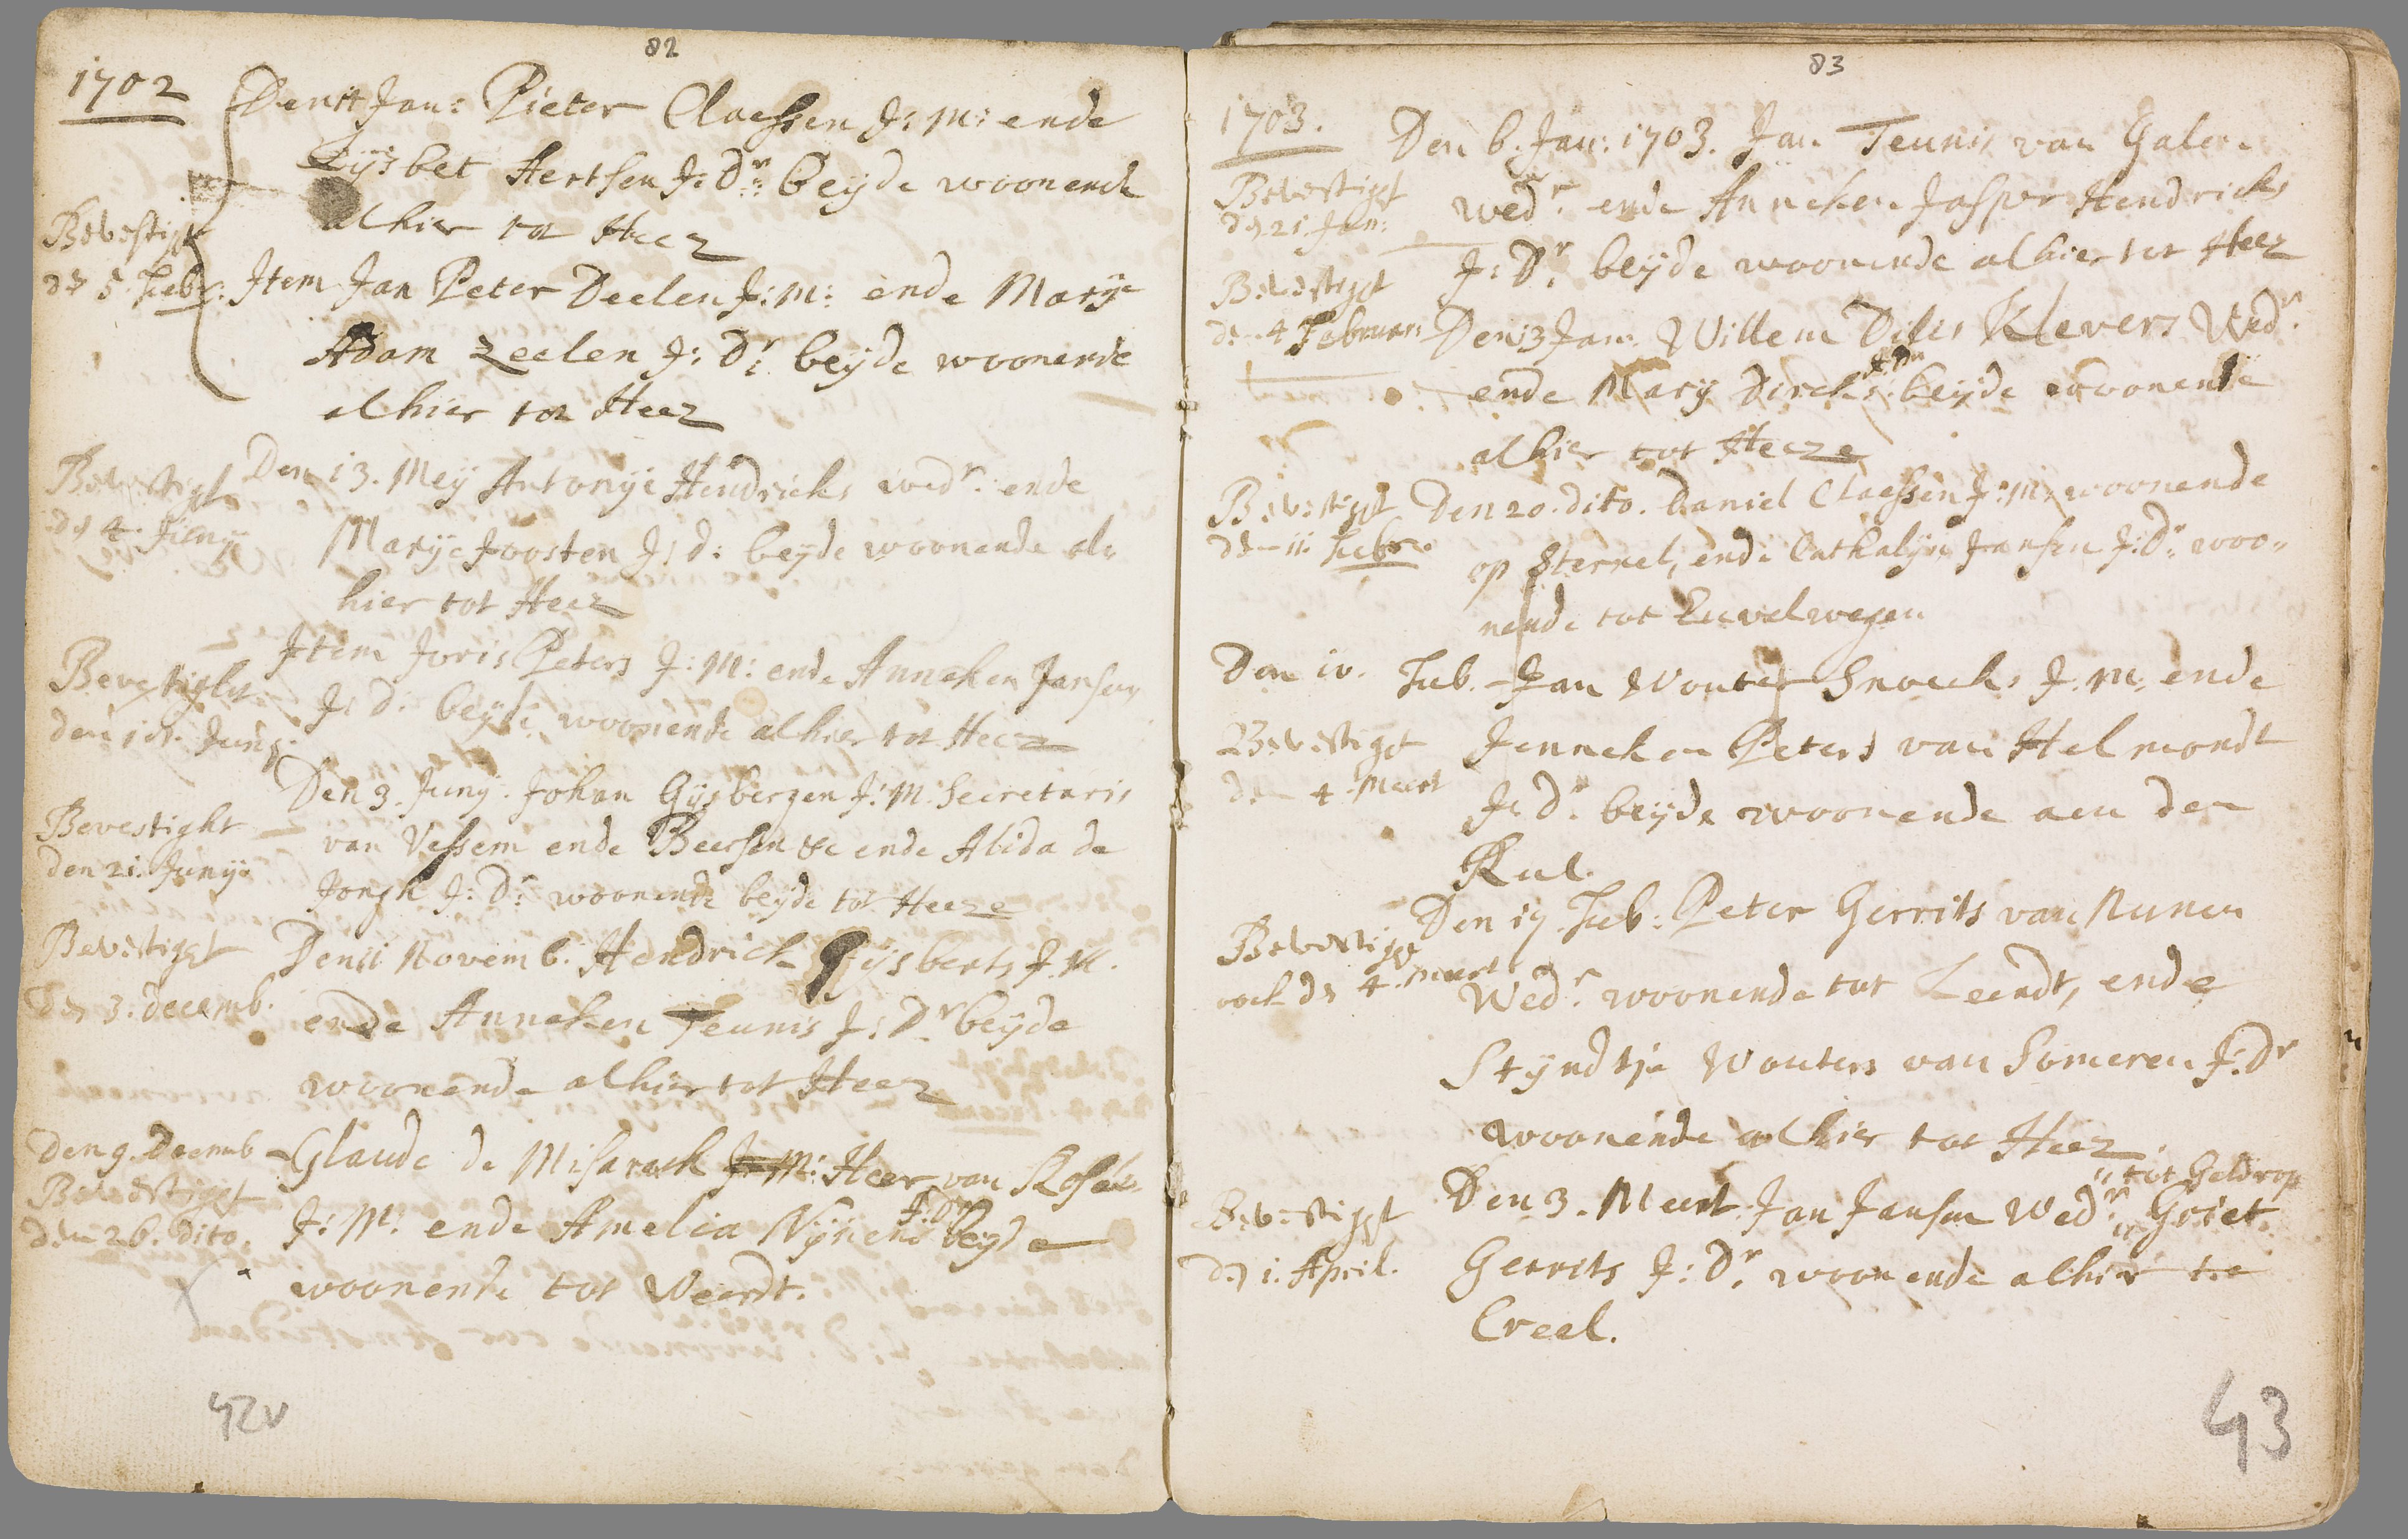 82
1702
Den 11 Jan: Pieter Claessen J: M: ende
Lijsbet Aertsen J: Dr: beijde woonende
alhier tot Heez
Bevestigt
d 5. Febr:
Item Jan Peter Deelen J: M: ende Marije
Adam Zeelen J: Dr: beijde woonende
alhier tot Heez
Bevestigt
d 4. Junij
Den 13. Meij Antonije Hendricks wedr: ende
Marije Joosten J: d: beijde woonende al„
hier tot Heez
Bevestight
den Junij
Item Joris Peters J: M: ende Anneken Jansen
J: D: beijde woonende alhier tot Heez
Bevestight
den 21. Junij
Den 3. Junij. Johan Gijsbergen J: M: Secretaris
van Vessem ende Beersen &c ende Alida de
Jongh J: Dr: woonende beijde tot Heeze
Bevestigt
d 3. decemb.
Den 11 Novemb: Hendrick Gijsberts J. M.
ende Anneken Teunis J: Dr beijde
woonende alhier tot Heez
Den 9. Decemb
Bevestiget
den 26. dito.
Glaude de Misarack J: M: Heer van
J: Dr
J: M: ende Amelia beijde
woonende tot Weerdt.
42v
83
1703.
Den 6. Jan: 1703. Jan Teunis van Galen
Bevestigt
d 21. Jan:
wedr: ende Anneken Jasper Hendricks
J: Dr: beijde woonende alhier tot Heez
Bevestigt
den 4 Februari
Den 13 Jan. Willem Dilis Klevers Wedr:
J: Dr
ende Marij Dircks: beijde woonende
alhier tot Heeze
Bevestigt
den 11. Febr.
Den 20. dito. Daniel Claessen J: M: woonende
op Sterxel, ende Cathalijn Jansen J: Dr: woo„
nende tot Euvelwegen
Den 10. Feb. Jan Wouter Snoecks J: M: ende
Bevestigt
den 4 Meert
Jenneken Peters van Helmondt
J: Dr: beijde woonende aen den
Rul.
Bevestigt
ock d 4. meert
Den 17. Feb: Peter Gerrits van Nunen
Wedr: woonende tot Leendt, ende
Stijndtje Wouters van Someren J: Dr
woonende alhier tot Heez
„ tot Geldrop
Bevestigt
d 1. April.
Den 3. Meert. Jan Jansen Wedr: „ Griet
Gerrits J: Dr: woonende alhier te
Creel.
43